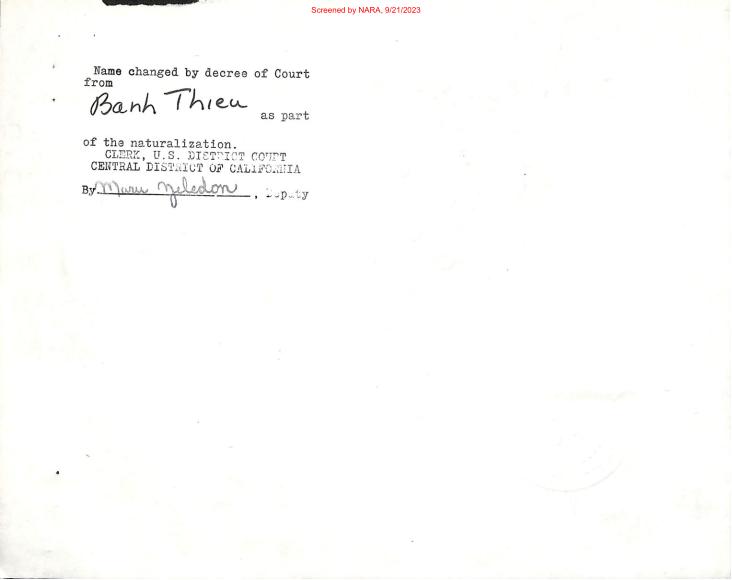 Screened by NARA, 9/21/2023
Name changed by decree of Court
from
Banh Thieu
as part
of the naturalization.
CLERK, U.S. DISTRICT COURT
CENTRAL DISTRICT OF CALIFORNIA
By Maru Zeledon, Deputy